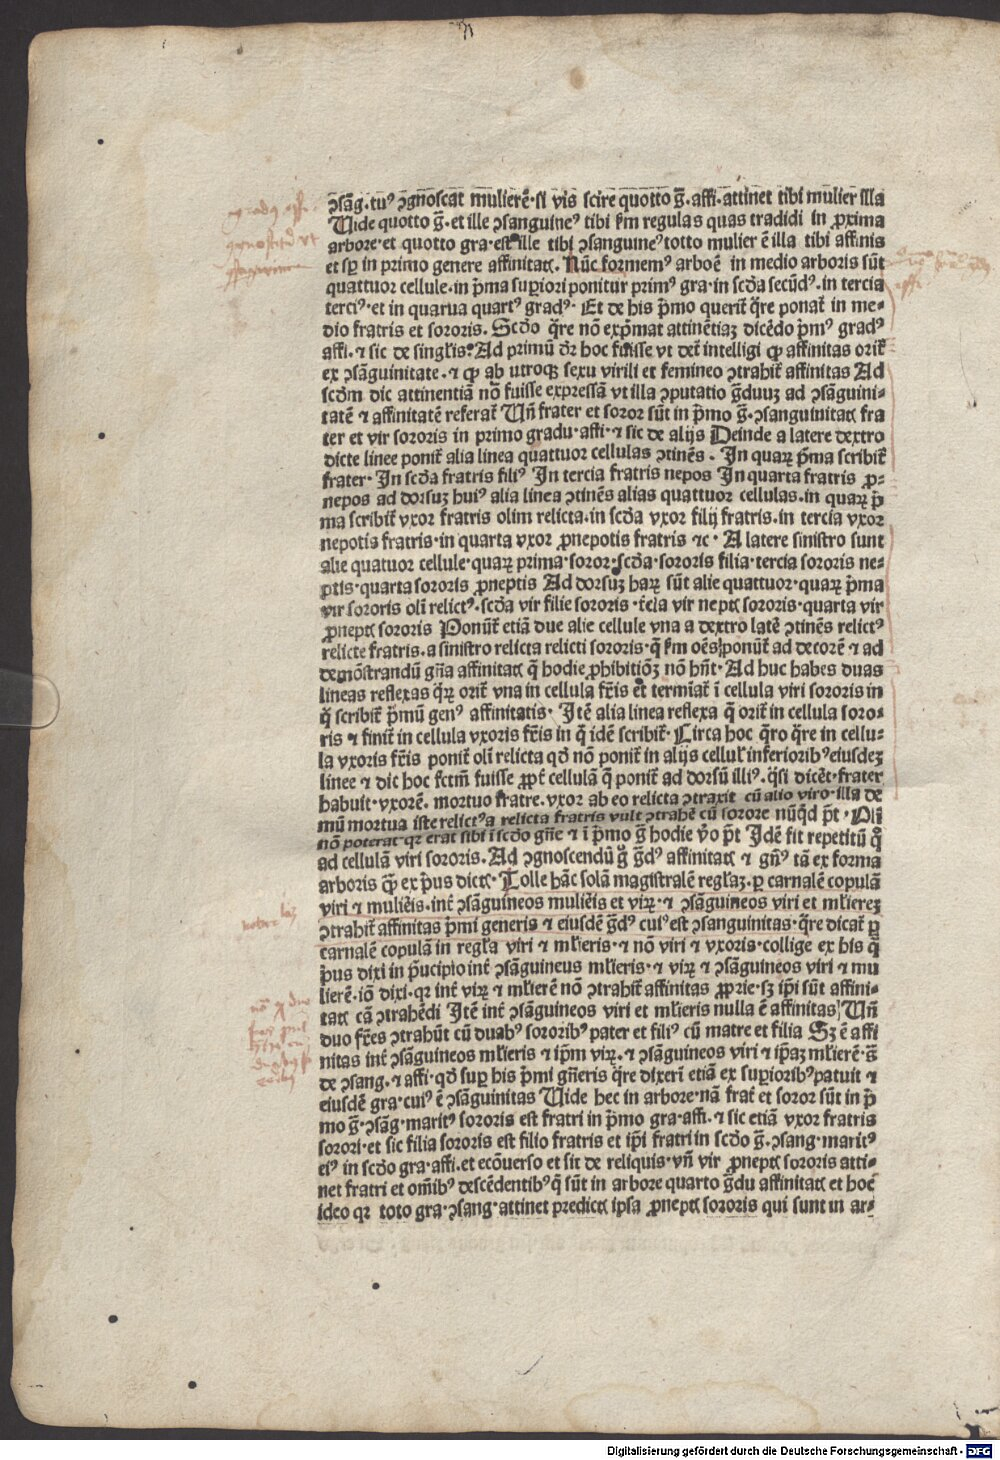 ꝯsãg. tuꝰ ꝯgnoscat mulierẽ. si vis scire quotto g̃. affi. attinet tibi mulier illa
Uide quotto g̃. et ille ꝯsanguineꝰ tibi ẜm regulas quas tradidi in ꝓxima
arbore. et quotto gra. est ille tibi ꝯsanguineꝰ totto mulier ẽ illa tibi affinis
et sꝑ in primo genere affinitatꝭ. Nũc formemꝰ arboẽ in medio arboris sũt
quattuor cellule. in p̃ma suꝑiori ponitur primꝰ gra. in scd̃a secũdꝰ. in tercia
terciꝰ. et in quarua quartꝰ gradꝰ. Et de his p̃mo querit̃ q̃re ponat̃ in me-
dio fratris et sororis. Scd̃o q̃re nõ exp̃mat attinẽtiaꝫ dicẽdo p̃mꝰ gradꝰ
affi. ⁊ sic de singl̃is. Ad primũ dr̃ hoc fuisse vt det̃ intelligi ꝙ affinitas orit̃
ex ꝯsãguinitate. ⁊ ꝙ ab utroqꝫ sexu virili et femineo ꝯtrahit̃ affinitas Ad
scd̃m dic attinentiã nõ fuisse expressã vt illa ꝯputatio g̃duuꝫ ad ꝯsãguini-
tatẽ ⁊ affinitatẽ referat̃ Uñ frater et soror sũt in p̃mo g̃. ꝯsanguinitatꝭ fra
ter et vir sororis in primo gradu. affi. ⁊ sic de alijs Deinde a latere dextro
dicte linee ponit̃ alia linea quattuor cellulas ꝯtinẽs. In quaꝝ p̃ma scribit̃
frater. In scd̃a fratris filiꝰ In tercia fratris nepos In quarta fratris ꝓ-
nepos ad dorsuꝫ huiꝰ alia linea ꝯtinẽs alias quattuor cellulas. in quaꝝ p̃
ma scribit̃ vxor fratris olim relicta. in scd̃a vxor filij fratris. in tercia vxor
nepotis fratris. in quarta vxor ꝓnepotis fratris ⁊c. A latere sinistro sunt
alie quatuor cellule. quaꝝ prima. soror. scd̃a. sororis filia. tercia sororis ne-
ptis. quarta sororis ꝓneptis Ad dorsuꝫ haꝝ sũt alie quattuor. quaꝝ p̃ma
vir sororis olĩ relictꝰ. scd̃a vir filie sororis. t̃cia vir neptꝭ sororis. quarta vir
ꝓneptꝭ sororis Ponũt̃ etiã due alie cellule vna a dextro latẽ ꝯtinẽs relictꝰ
relicte fratris. a sinistro relicta relicti sororis. q̃ ẜm oẽs ponũt̃ ad decorẽ ⁊ ad
demõstrandũ gña affinitatꝭ q̃ hodie ꝓhibitiõꝫ nõ hñt. Ad huc habes duas
lineas reflexas q̃ꝝ orit̃ vna in cellula fr̃is et termĩat̃ ĩ cellula viri sororis in
q̃ scribit̃ p̃mũ genꝰ affinitatis. Itẽ alia linea reflexa q̃ orit̃ in cellula soro-
ris ⁊ finit̃ in cellula vxoris fr̃is in q̃ idẽ scribit̃. Circa hoc q̃ro q̃re in cellu-
la vxoris fr̃is ponit̃ olĩ relicta qd̃ nõ ponit̃ in alijs cellul̃ inferioribꝰ eiusdeꝫ
linee ⁊ dic hoc fc̃tm̃ fuisse ꝓpt̃ cellulã q̃ ponit̃ ad dorsũ illiꝰ. q̃si dicẽt. frater
habuit. vxorẽ. mortuo fratre. vxor ab eo relicta ꝯtraxit cũ alio viro. illa de
mũ mortua iste relictꝰ a relicta fratris vult ꝯtrahẽ cũ sorore nũqd̃ p̃t. Olĩ
nõ poterat. qꝛ erat sibi ĩ scd̃o gñe ⁊ ĩ p̃mo g̃ hodie v̊o p̃t Idẽ fit repetitũ q̊
ad cellulã viri sororis. Ad ꝯgnoscendũ g̃ g̃dꝰ affinitatꝭ ⁊ gñꝰ tã ex forma
arboris q̃ꝫ ex p̃us dictꝭ. Tolle hãc solã magistralẽ regl̃aꝫ. ꝑ carnalẽ copulã
viri ⁊ mulieris. int̃ ꝯsãguineos mulieris et viꝝ. ⁊ ꝯsãguineos viri et ml̃iereꝫ
ꝯtrahit̃ affinitas p̃mi generis ⁊ eiusdẽ g̃dꝰ cuiꝰ est ꝯsanguinitas. q̃re dicat̃ ꝑ
carnalẽ copulã in regl̃a viri ⁊ ml̃ieris. ⁊ nõ viri ⁊ vxoris. collige ex his q̃
p̃us dixi in p̃ucipio int̃ ꝯsãguineus ml̃ieris. ⁊ viꝝ ⁊ ꝯsãguineos viri ⁊ mu
lierẽ. iõ dixi. qꝛ int̃ viꝝ ⁊ ml̃ierẽ nõ ꝯtrahit̃ affinitas ꝓprie. sꝫ ip̃i sũt affini-
tatꝭ cã ꝯtrahẽdi Itẽ int̃ ꝯsãguineos viri et ml̃ieris nulla ẽ affinitas Uñ
duo fr̃es ꝯtrahũt cũ duabꝰ sororibꝰ pater et filiꝰ cũ matre et filia Sꝫ ẽ affi
nitas int̃ ꝯsãguineos ml̃ieris ⁊ ip̃m viꝝ. ⁊ ꝯsãguineos viri ⁊ ip̃aꝫ ml̃ierẽ. g̃
de ꝯsang. ⁊ affi. qd̃ suꝑ his p̃mi gñeris q̃re dixerĩ etiã ex suꝑioribꝰ patuit ⁊
eiusdẽ gra. cuiꝰ ẽ ꝯsãguinitas Uide hec in arbore. nã frat̃ et soror sũt in p̃
mo g̃. ꝯsãg. maritꝰ sororis est fratri in p̃mo gra. affi. ⁊ sic etiã vxor fratris
sorori. et sic filia sororis est filio fratris et ip̃i fratri in scd̃o g̃. ꝯsang. maritꝰ
eiꝰ in scd̃o gra. affi. et ecõuerso et sit de reliquis. vñ vir ꝓneptꝭ sororis atti-
net fratri et om̃ibꝰ descẽdentibꝰ q̃ sũt in arbore quarto g̃du affinitatꝭ et hoc
ideo qꝛ toto gra. ꝯsang. attinet predictꝭ ipsa ꝓneptꝭ sororis qui sunt in ar-
Digitalisierung gefördert durch die Deutsche Forschungsgemeinschaft - DFG